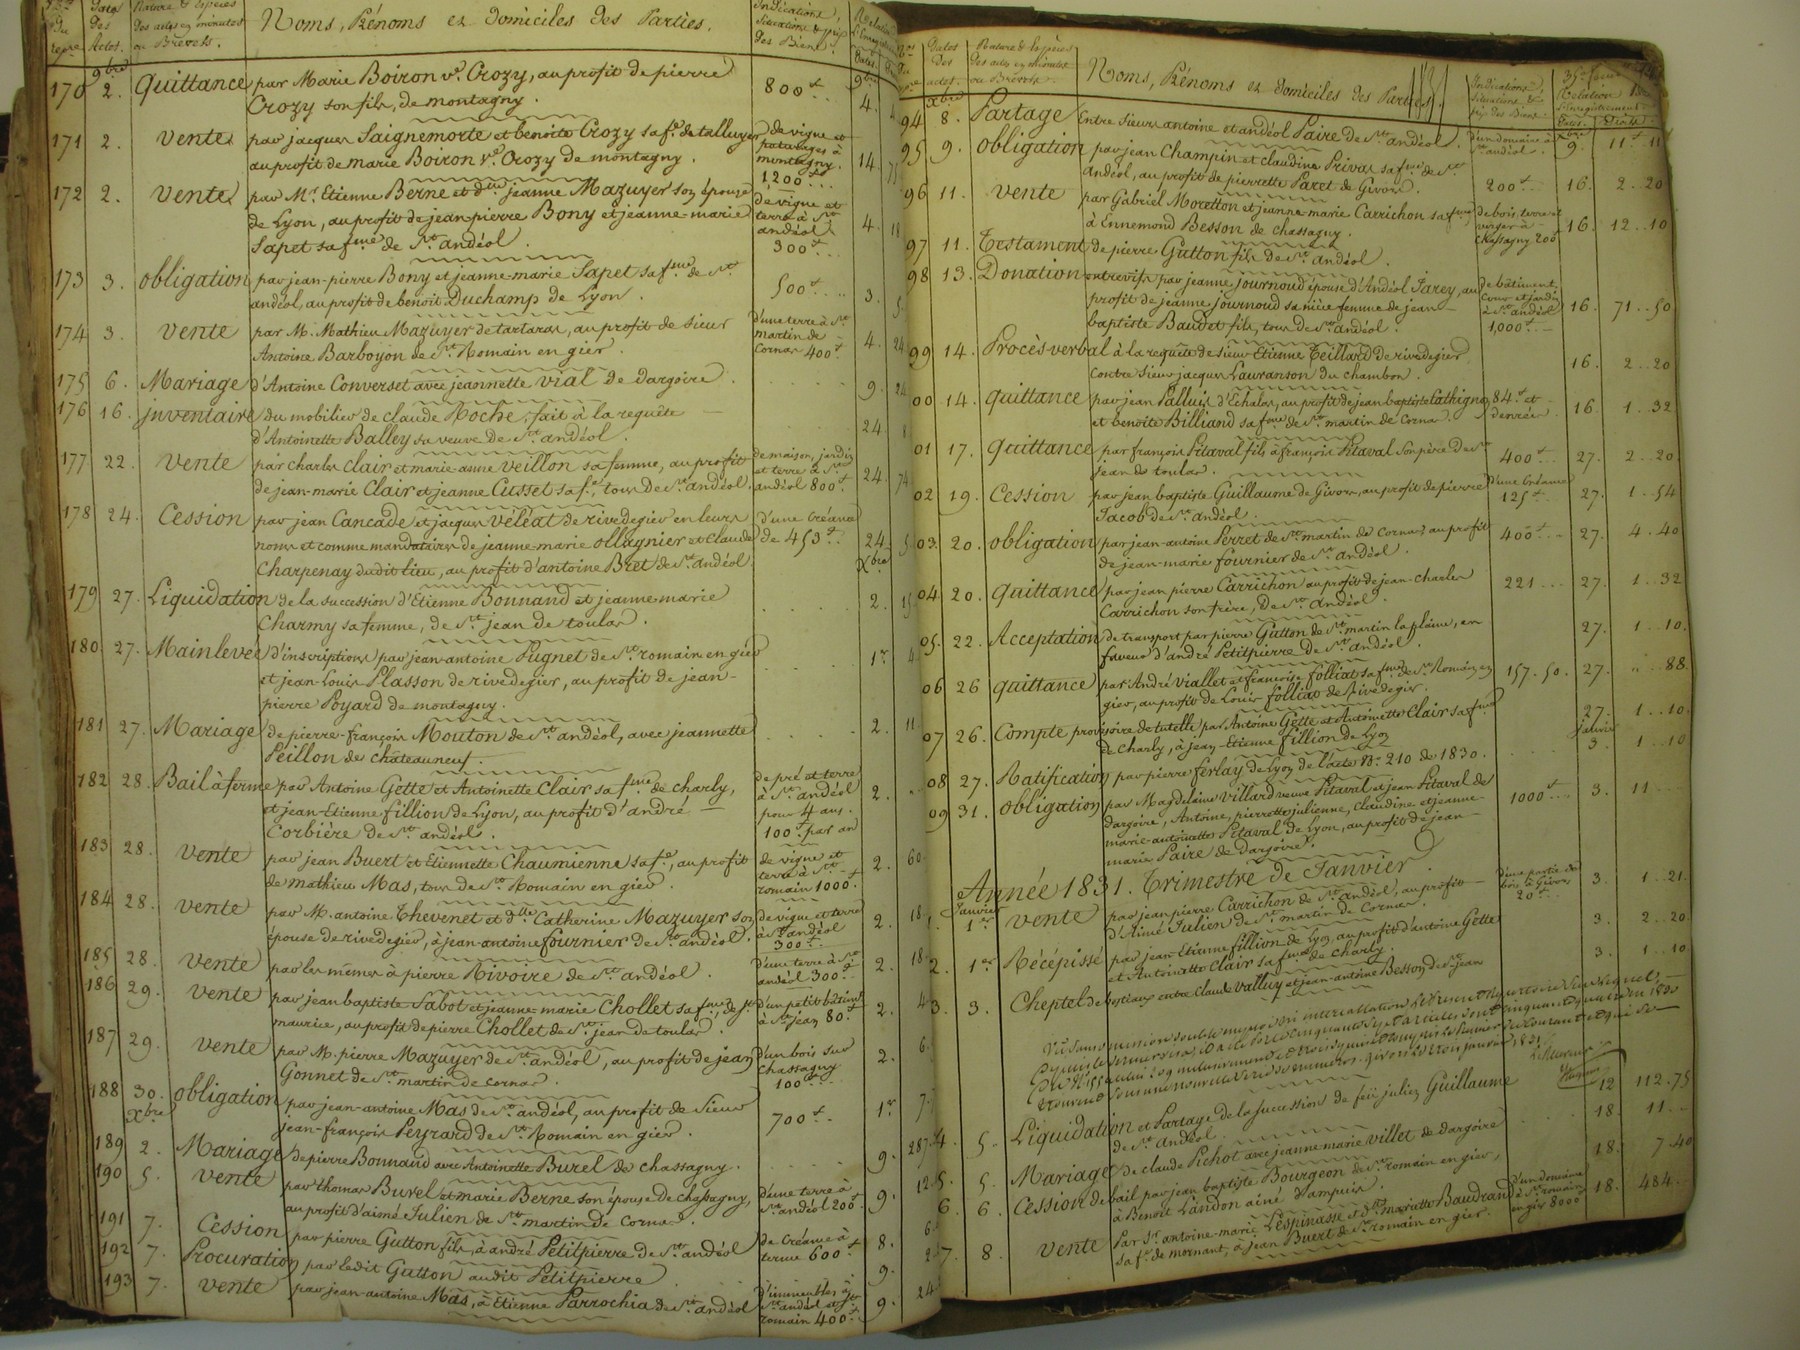 Dates des Actes.
Nature & Espèces des actes en minutes ou Brevets.
Noms, Prénoms et domiciles des Parties.
9bre
170 2. Quittance par Marie Boiron ve. Crozy, au profit de pierre 800# 9bre
Crozy son fils, de montagny. 4.
171 2. Vente par jacques Saignemorte et benoite Crozy sa fe. de talluyer de vigne et
au profit de Marie Boiron ve. Crozy de montagny. paturages à montagny. 14.
1200#
172 2. Vente par Mr. Etienne Berne et dme jeanne Mazuyer son épouse de vigne et
de Lyon, au profit de jean-pierre Bony et jeanne-marie terre à St. andéol 4. 18
Sapet sa fme de St. andéol. 300#
173 3. Obligation par jean-pierre Bony et jeanne-marie Sapet sa fme de St. 500# 3.
andéol, au profit de benoit Duchamp de Lyon.
174 3. Vente par M. Mathieu Mazuyer de tartaras, au profit de sieur d'une terre à St.
Antoine Barboyon de St. Romain en gier. martin de Cornas 400# 4. 24
175 6. Mariage d'Antoine Converset avec jeannette Vial de dargoire. 9.
176 16. inventaire du mobilier de Claude Roche, fait à la requête
d'Antoinette Balley sa veuve de St. andéol. 24.
177 22. Vente par Charles Clair et marie-anne Veillon sa femme, au profit de maison, jardin
de jean-marie Clair et jeanne Cusset sa fe., tous de St. andéol. et terre à St. andéol 800# 24.
178 24. Cession par jean Cancade et jacques Véléat de rivedegier en leurs d'une Créance
noms et comme mandataires de jeanne-marie Ollagnier et Claude de 453# 24.
Charpenay dudit lieu, au profit d'antoine Bret de St. andéol. Xbre
179 27. Liquidation de la succession d'Etienne Bonnand et jeanne-marie 2. 15
Charmy sa femme, de St. jean de toulas.
180 27. Mainlevée d'inscriptions par jean-antoine Pugnet de St. romain en gier 1er
et jean-Louis Plasson de rivedegier, au profit de jean-
pierre Poyard de montagny.
181 27. Mariage de pierre-françois Mouton de St. andéol, avec jeannette 2. 11
Peillon de chateauneuf.
182 28. Bail à ferme par Antoine Gette et Antoinette Clair sa fme de charly, de pré et terre
et jean-Etienne Fillion de Lyon, au profit d'andré à St. andéol 2.
Corbière de St. andéol. pour 4 ans. 100# par an
183 28. Vente par jean Buert et Etiennette Chaumienne sa fe., au profit de vigne et
de mathieu Mas, tous de St. Romain en gier. terre à St. romain 1000# 2. 60
184 28. Vente par M. antoine Thevenet et dlle Catherine Mazuyer son de vigne et terre
épouse de rivedegier, à jean-antoine fournier de St. andéol. à St. andéol 300# 2. 18
185 28. Vente par les mêmes à pierre Rivoire de St. andéol. d'une terre à St. andéol 300# 2. 18
186 29. Vente par jean baptiste Sabot et jeanne-marie Chollet sa fme, de St. d'un petit bâtiment
maurice, au profit de pierre Chollet de St. jean de toulas. à St. jean 80# 2. 4
187 29. Vente par M. pierre Mazuyer de St. andéol, au profit de jean d'un bois sur
Gonnet de St. martin de cornas. Chassagny 100# 2. 6
188 30. Obligation par jean-antoine Mas de St. andéol, au profit de sieur 700# 1er 7.
jean-françois Peyrard de St. Romain en gier.
Xbre
189 2. Mariage de pierre Bonnand avec Antoinette Burel de chassagny. 9.
190 5. Vente par thomas Burel et marie Berne son épouse de chassagny, d'une terre à
au profit d'aimé Julien de St. martin de Cornas. St. andéol 200# 9. 12
191 7. Cession par pierre Gutton fils, à andré Petitpierre de St. andéol de Créance à terme 600# 8.
192 7. Procuration par ledit Gutton audit Petitpierre 9.
193 7. Vente par jean-antoine Mas, à Etienne Parrochia de St. andéol d'immeubles à
St. andéol et St. romain 400# 9. 24
Dates des actes.
Nature & Espèces des actes en minutes ou Brevets.
Noms, Prénoms et domiciles des Parties.
Xbre
94 8. Partage Entre Sieurs antoine et andéol Paire de St. andéol. d'un domaine à St. andéol. 9. 11# 11
95 9. Obligation par jean Champin et claudine Privas sa fme de St.
andéol, au profit de pierrette Paret de Givors. 200# 16. 2..20
96 11. Vente par Gabriel Moretton et jeanne marie Carrichon sa fme de bois, terre et
à Ennemond Besson de chassagny. verger à Chassagny 200# 16. 12..10
97 11. Testament de pierre Gutton fils de St. andéol.
98 13. Donation entrevifs par jeanne journoud épouse d'Andéol Farey, au de bâtiment,
profit de jeanne journoud sa nièce femme de jean- cour et jardin à St. andéol 16. 71..50
baptiste Baudet fils, tous de St. andéol. 1,000#
99 14. Procès verbal à la requête de sieur Etienne Teillard de rivedegier 16. 2..20
Contre Sieur jacques Lauranson du chambon.
00 14. Quittance par jean Palluis d'Echalas, au profit de jean baptiste Cathignon 84# et
et benoite Billiand sa fme de St. martin de Cornas. denrées 16. 1..32
01 17. Quittance par françois Pitaval fils à françois Pitaval son père de St. 400# 27. 2..20
jean de toulas.
02 19. Cession par jean baptiste Guillaume de Givors, au profit de pierre d'une Créance
Jacob de St. andéol. 125# 27. 1..54
03. 20. Obligation par jean-antoine Perret de St. martin de Cornas, au profit 400# 27. 4..40
de jean-marie fournier de St. andéol.
04 20. Quittance par jean pierre Carrichon au profit de jean-charles 221 27. 1..32
Carrichon son frère, de St. Andéol.
05. 22. Acceptation de transport par pierre Gutton de St. martin la plaine, en 27. 1..10.
faveur d'andré Petitpierre de St. andéol.
06 26 Quittance par André Viallet et françoise folliat sa fme de St. Romain en 157..50. 27. ..88
gier, au profit de Louis folliat de rivedegier.
07 26. Compte provisoire de tutelle par Antoine Gette et Antoinette Clair sa fme 27. 1..10.
de Charly, à jean-Etienne fillion de Lyon janvier
08 27. Ratification par pierre ferlay de Lyon de l'acte No. 210 de 1830. 3. 1..10
09 31. Obligation par Magdelaine Villard veuve Pitaval et jean Pitaval de 1000# 3. 11
dargoire, Antoine, pierrette julienne, Claudine et jeanne-
marie-antoinette Pitaval de Lyon, au profit de jean-
marie Paire de dargoire.
Année 1831. Trimestre de Janvier.
Janvier
1. 1er Vente par jean pierre Carrichon de St. andéol, au profit d'une partie de
d'Aimé Julien de St. martin de Cornas. bois à Givors 20# 3. 1..21.
2. 1er Récépissé par jean-Etienne fillion de Lyon au profit d'antoine Gette 3. 2..20
et Antoinette Clair sa fme de Charly.
3. 3. Cheptel de bestiaux entre Claude Valluy et jean-antoine Besson de St. jean 3. 1..10
givors le trois janvier 1831.
4. 5. Liquidation et Partage de la succession de feu julien Guillaume 12 112.75
de St. andéol.
5. 5. Mariage de claude Pichot avec jeanne marie Villet de dargoire 18. 11
6. 6. Cession de bail par jean baptiste Bourgeon de St. romain en gier, 18. 7.40
à Benoit Landon ainé d'ampuis.
7. 8. Vente Par Sr. antoine-marie Lespinasse et dme mariette Baudrand d'un domaine
sa fe. de mornant, à jean Buert de St. romain en gier. à St. romain en gier 8000# 18. 484